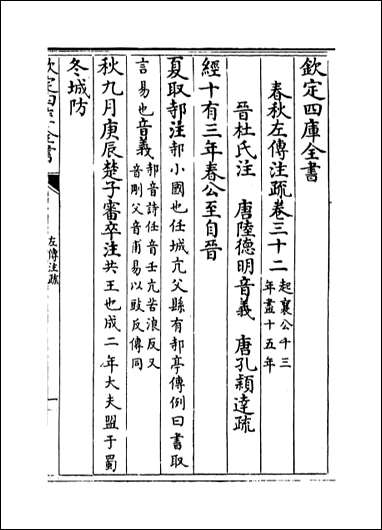 欽定四庫全書
春秋左傳注疏卷三十二
起襄公十三
年盡十五年
晉杜氏注　唐陸德明音義　唐孔穎達疏
經十有三年春公至自晉
夏取邿注邿小國也任城亢父縣有邿亭傳例曰書取
言易也音義
邿音詩任音壬亢苦浪反又
音剛父音甫易以豉反傳同
秋九月庚辰楚子審卒注共王也成二年大夫盟于蜀
冬城防
欽定四庫全書
左傳注疏
一